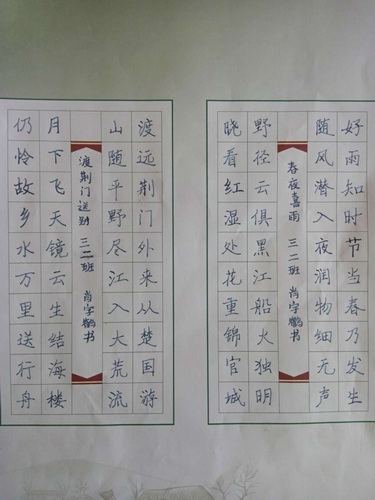 好雨知时节当春乃发生
随风潜入夜润物细无声
春夜喜雨 三二班 肖宇鹤书
野径云俱黑江船火独明
晓看红湿处花重锦官城
渡远荆门外来从楚国游
山随平野尽江入大荒流
渡荆门送别 三二班 肖宇鹤书
月下飞天镜云生结海楼
仍怜故乡水万里送行舟